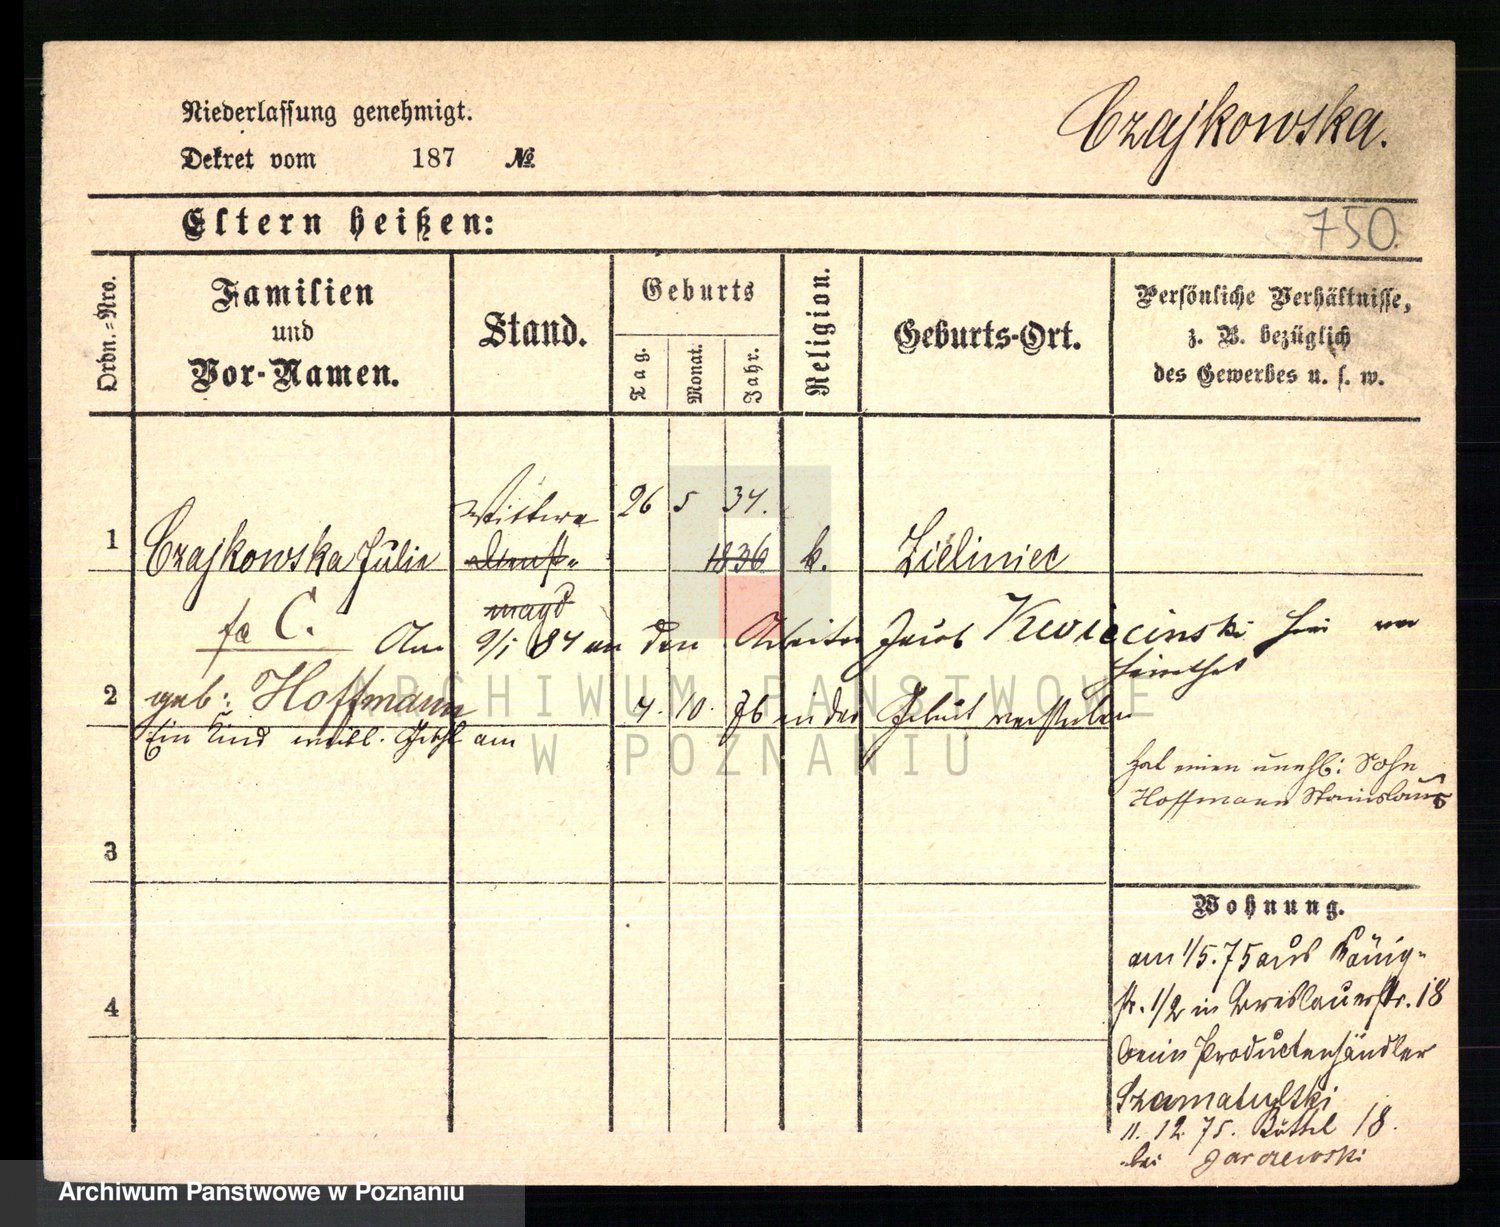 Niederlassung genehmigt.
Dekret vom 187 №
Czajkowska.
Eltern heißen:
750.
Ordn.-Nro.
Familien
und
Vor-Namen.
Stand.
Geburts
Tag.
Monat.
Jahr.
Religion.
Geburts-Ort.
Persönliche Verhältnisse,
z. B. bezüglich
des Gewerbes u. s. w.
Wittwe 26 5 34.
1 Czajkowska Julie Dienst- 1836 k. Zieliniec
magd
C.
Am 9/1 84 an den Arbeiter Jacob Kwiecinski
2 geb: Hoffmann 4. 10. 76 in der Geburt verstorben
Ein Kind weibl. Geschl. am
hat einen unehl: Sohn
Hoffmann Stanislaus
3
Wohnung.
am 1/5.75 aus König-
str. 1/2 in Breslauerstr. 18
beim Productenhändler
Szamatulski
4
11. 12. 75. Büttel 18.
bei Jarczewski
ARCHIWUM PAŃSTWOWE
W POZNANIU
Archiwum Państwowe w Poznaniu